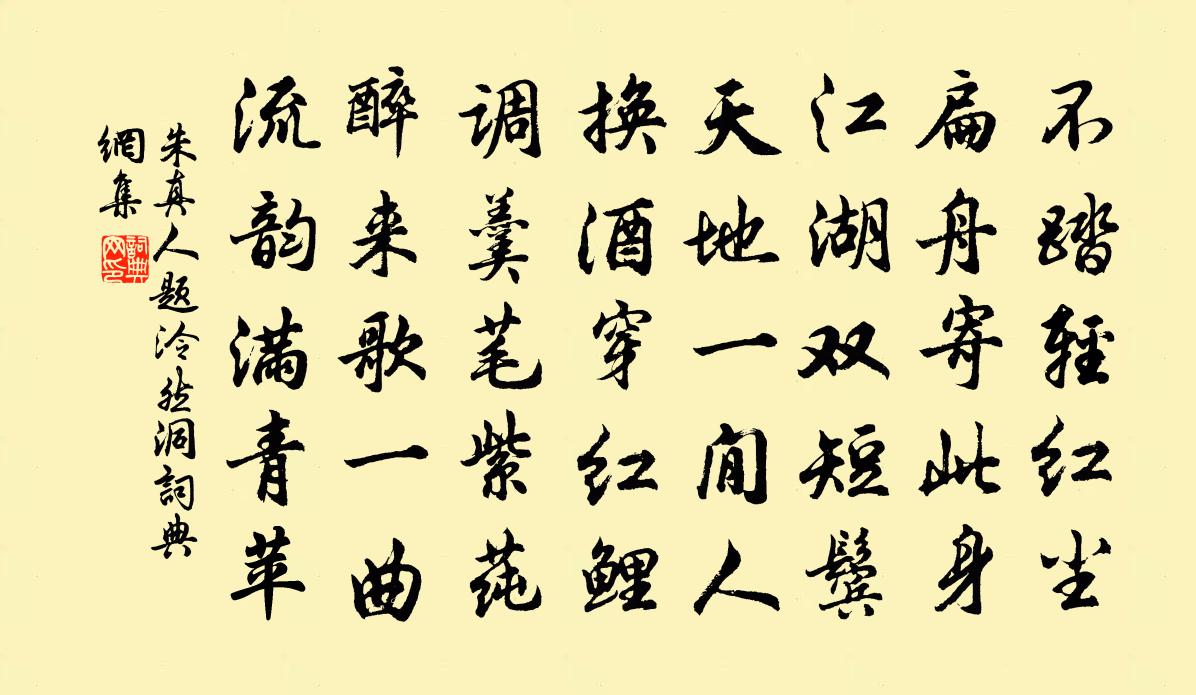 不踏輕红尘
扁舟寄此身
江湖双短鬓
天地一閒人
换酒穿红鲤
调羹芼紫莼
醉来歌一曲
流韵满青苹
朱真人题泠然洞詞典
網集
詞典
网印